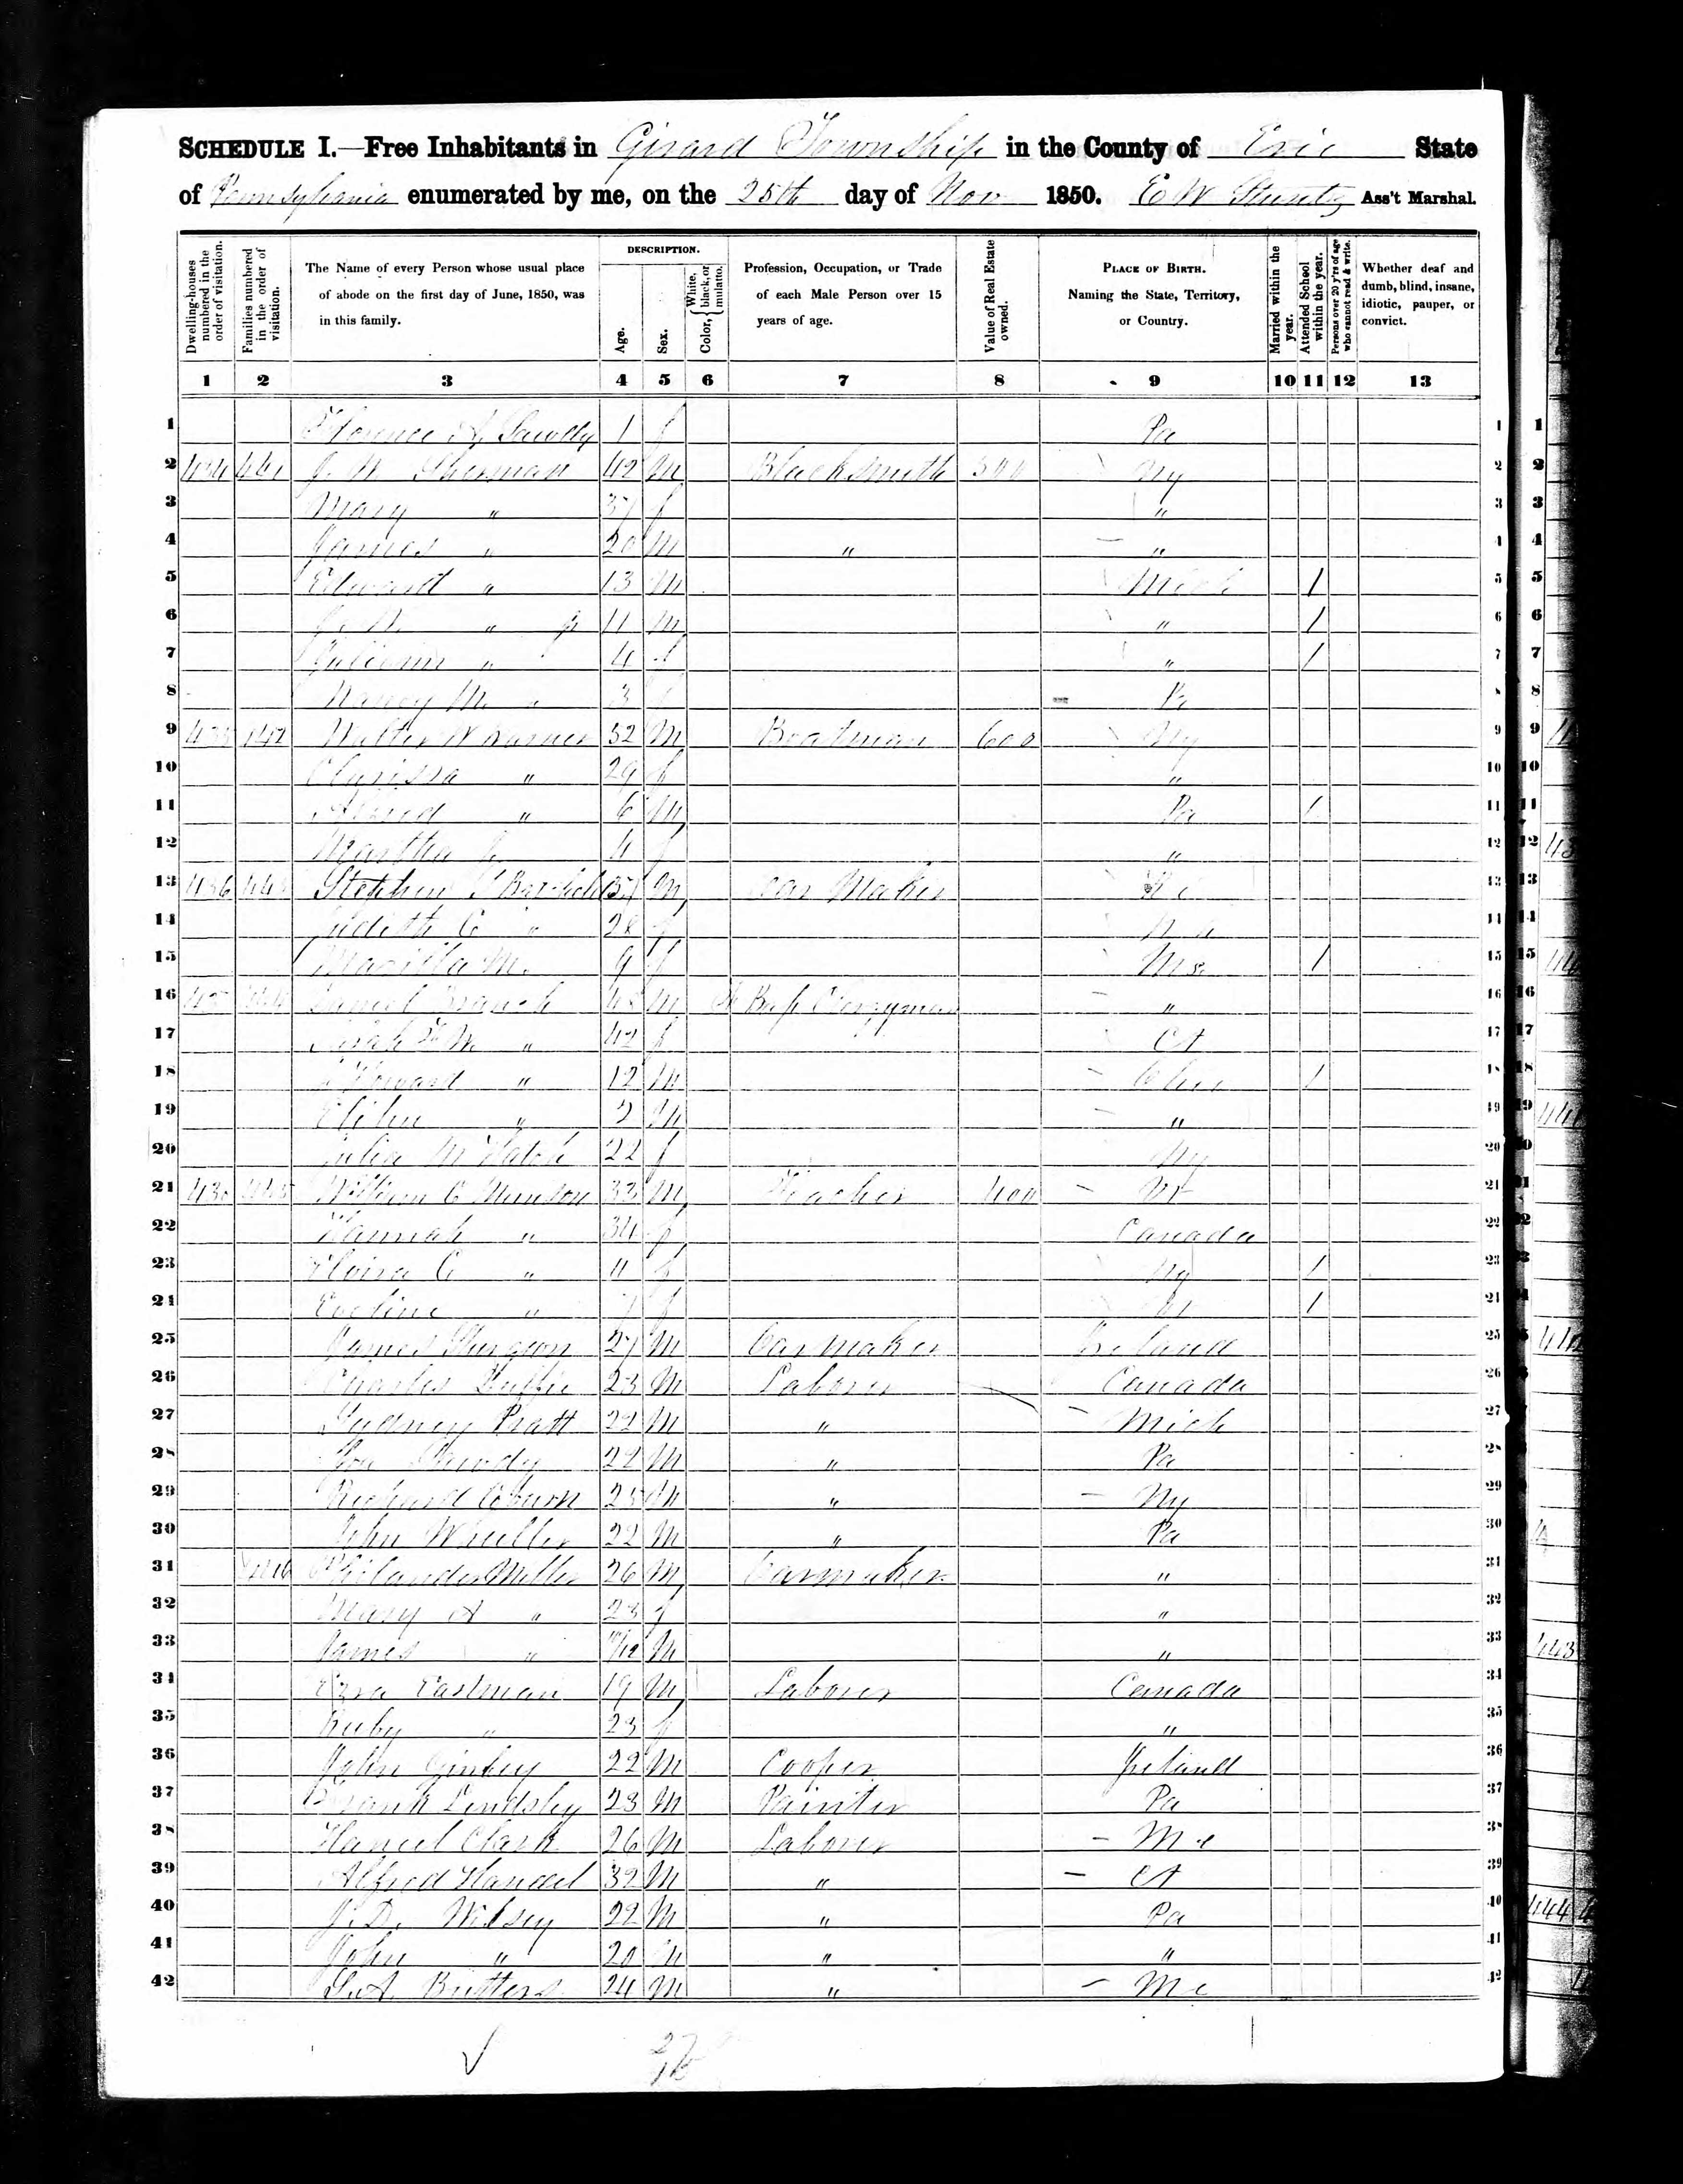 SCHEDULE I.—Free Inhabitants in Girard Township in the County of Erie State
of Pennsylvania enumerated by me, on the 25th day of Nov 1850. E W Stuntz Ass't Marshal.
Dwelling-houses numbered in the order of visitation.
Families numbered in the order of visitation.
The Name of every Person whose usual place of abode on the first day of June, 1850, was in this family.
DESCRIPTION.
Age.
Sex.
Color, { White, black, or mulatto.
Profession, Occupation, or Trade of each Male Person over 15 years of age.
Value of Real Estate owned.
PLACE OF BIRTH. Naming the State, Territory, or Country.
Married within the year.
Attended School within the year.
Persons over 20 y'rs of age who cannot read & write.
Whether deaf and dumb, blind, insane, idiotic, pauper, or convict.
1 2 3 4 5 6 7 8 9 10 11 12 13
1 Florence A. 1 f Pa 1
2 434 441 J. W. Sherman 42 M Blacksmith 500 Ny 2
3 Mary " 37 f " 3
4 James " 20 M " " 4
5 Edward " 13 M Mich 1 5
6 J. W. " jr 11 M " 1 6
7 " 4 f " 1 7
8 Nancy M. " 3 f Pa 8
9 435 442 Walter W Warner 32 M Boatman 600 Ny 9
10 Clarissa " 29 f " 10
11 Alfred " 6 M Pa 1 11
12 Martha 4 f " 12
13 436 443 Stephen 37 M Car Maker 13
14 Judith C " 28 f 14
15 Marilla M. 9 f Ms 1 15
16 437 444 Daniel Branch 48 M Bap Clergyman " 16
17 M. " 42 f Ct 17
18 Edward " 12 M Ohio 1 18
19 Elihu " 2 M " 19
20 Julia M Hatch 22 f Ny 20
21 438 445 William C Munson 33 M Teacher 400 Vt 21
22 Hannah " 34 f Canada 22
23 Elvira C " 11 f Ny 1 23
24 Eveline " 7 f Vt 1 24
25 James Sturgeon 27 M Carmaker Ireland 25
26 Charles Duffie 23 M Laborer Canada 26
27 Sydney Pratt 22 M " Mich 27
28 22 M " Pa 28
29 Richard Coburn 25 M " Ny 29
30 John Wheeller 22 M " Pa 30
31 446 Philander Miller 26 M Carmaker " 31
32 Mary A " 23 f " 32
33 James " /12 M " 33
34 Ezra Eastman 19 M Laborer Canada 34
35 Ruby " 23 f " 35
36 John Ginley 22 M Cooper Ireland 36
37 Frank Lindsley 23 M Painter Pa 37
38 Clark 26 M Laborer Me 38
39 Alfred Handel 32 M " Ct 39
40 J. D. Wilsey 22 M " Pa 40
41 John " 20 M " " 41
42 S. A. Butters 24 M " Me 42